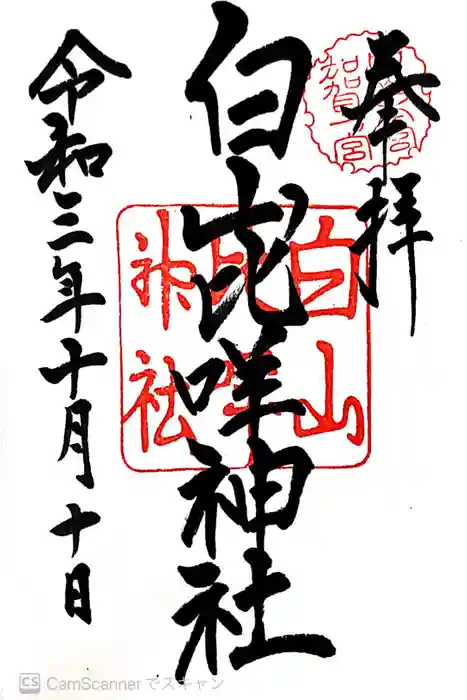 奉拝
加賀一宮
白山比咩神社
白山
比咩
神社
令和三年十月十日
CS CamScannerでスキャン